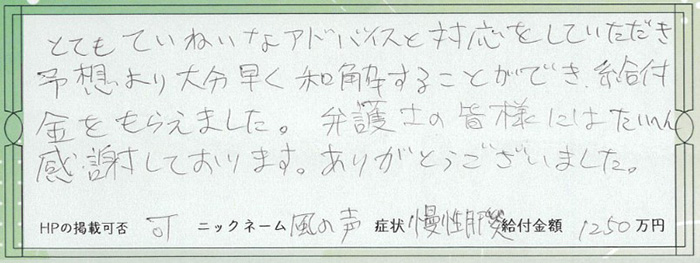 とてもていねいなアドバイスと対応をしていただき
予想より大分早く和解することができ、給付
金をもらえました。弁護士の皆様にはたいへん
感謝しております。ありがとうございました。
HPの掲載可否 可 ニックネーム 風の声 症状 慢性肝炎 給付金額 1250万円